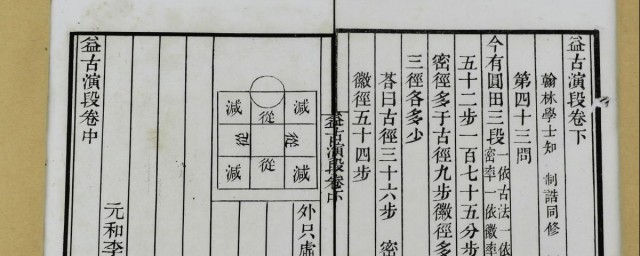 益古演段卷下
翰林學士知 制誥同修
第四十三問
今有圓田三段
一依古法一依
密率一依徽率
五十二步一百七十五分步
密徑多于古徑九步徽徑多
三徑各多少
荅曰古徑三十六步 密
徽徑五十四步
益古演段卷
外只虛
減 從 減
從 從
減 從 減
元和李
益古演段卷中